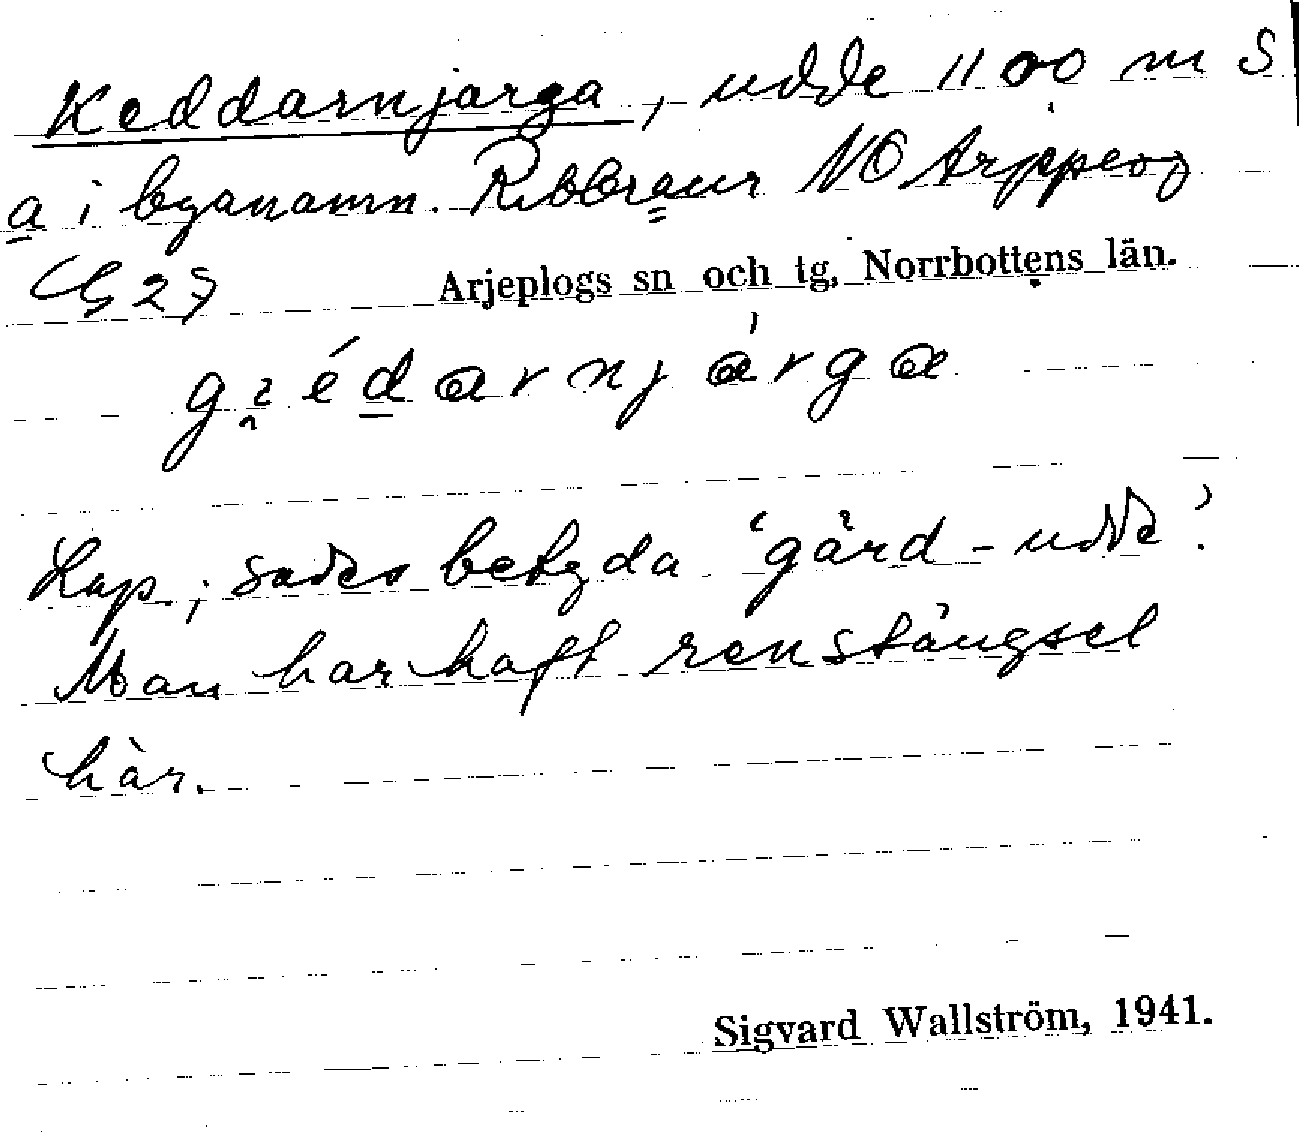 Keddarnjarga, udde 1100 m S
a i byanamn. Rebbraur NO Arjeplog
G 27 Arjeplogs sn och tg, Norrbottens län.
Lap.; sades betyda 'gård-udde'.
Man har haft renstängsel
här.
Sigvard Wallström, 1941.